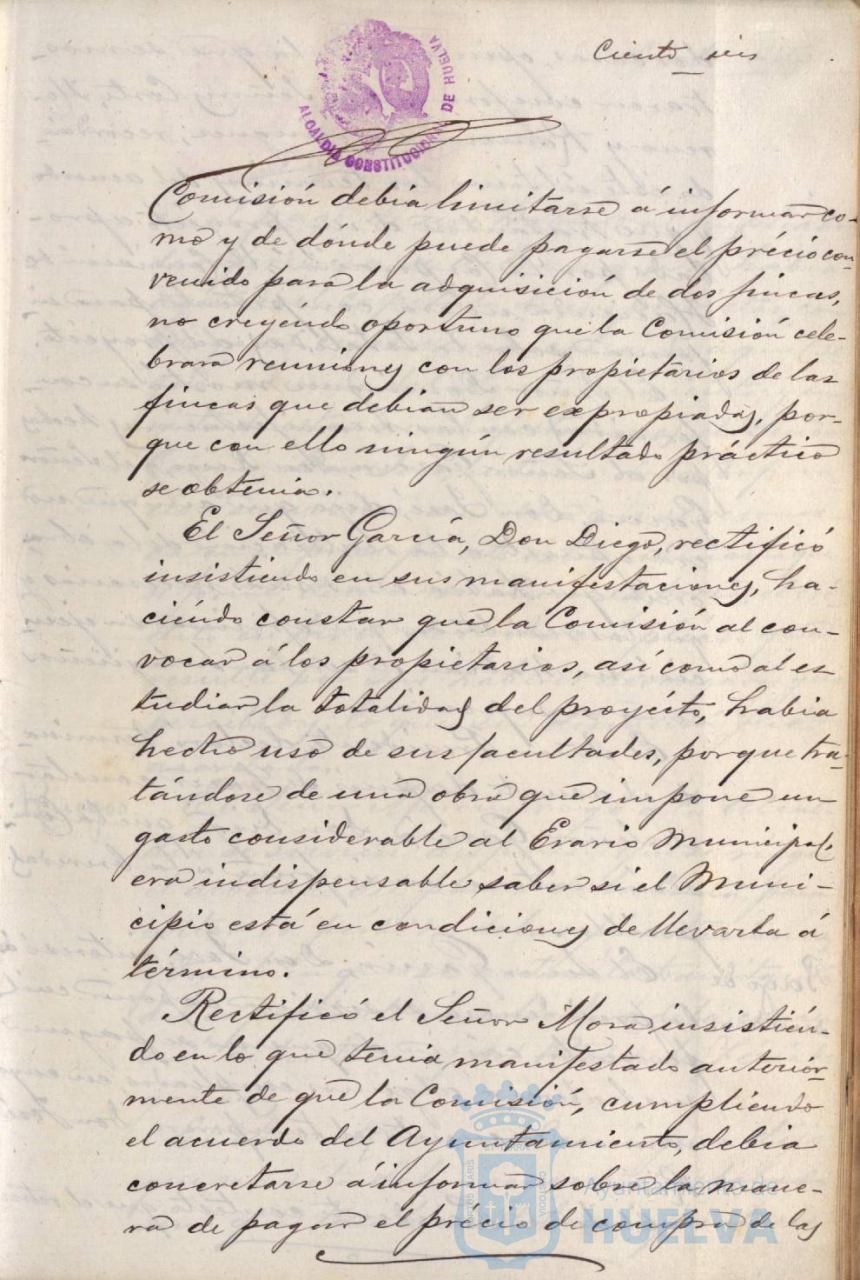 Ciento seis
ALCALDIA CONSTITUCIONAL DE HUELVA
Comisión debia limitarse á informar co-
mo y de dónde puede pagarse el précio con-
venido para la adquisición de dos fincas,
no creyéndo oportuno que la Comisión cele-
brara reuniones con los propietarios de las
fincas que debian ser expropiadas, por-
que con ello ningún resultado práctico
se obtenia.
El Señor García, Don Diego, rectificó
insistiendo en sus manifestaciones, ha-
ciéndo constar que la Comisión al con-
vocar á los propietarios, así como al es
tudiar la totalidad del proyécto, habia
hecho uso de sus facultades, porque tra-
tándose de una obra que impone un
gasto considerable al Erario Municipal,
era indispensable saber si el Muni-
cipio está en condiciones de llevarla á
término.
Rectificó el Señor Mora insistién-
do en lo que tenia manifestado anterior-
mente de que la Comisión, cumpliendo
el acuerdo del Ayuntamiento, debia
concretarse á informar sobre la mane-
ra de pagar el précio de compra de las
Ayuntamiento de
HUELVA